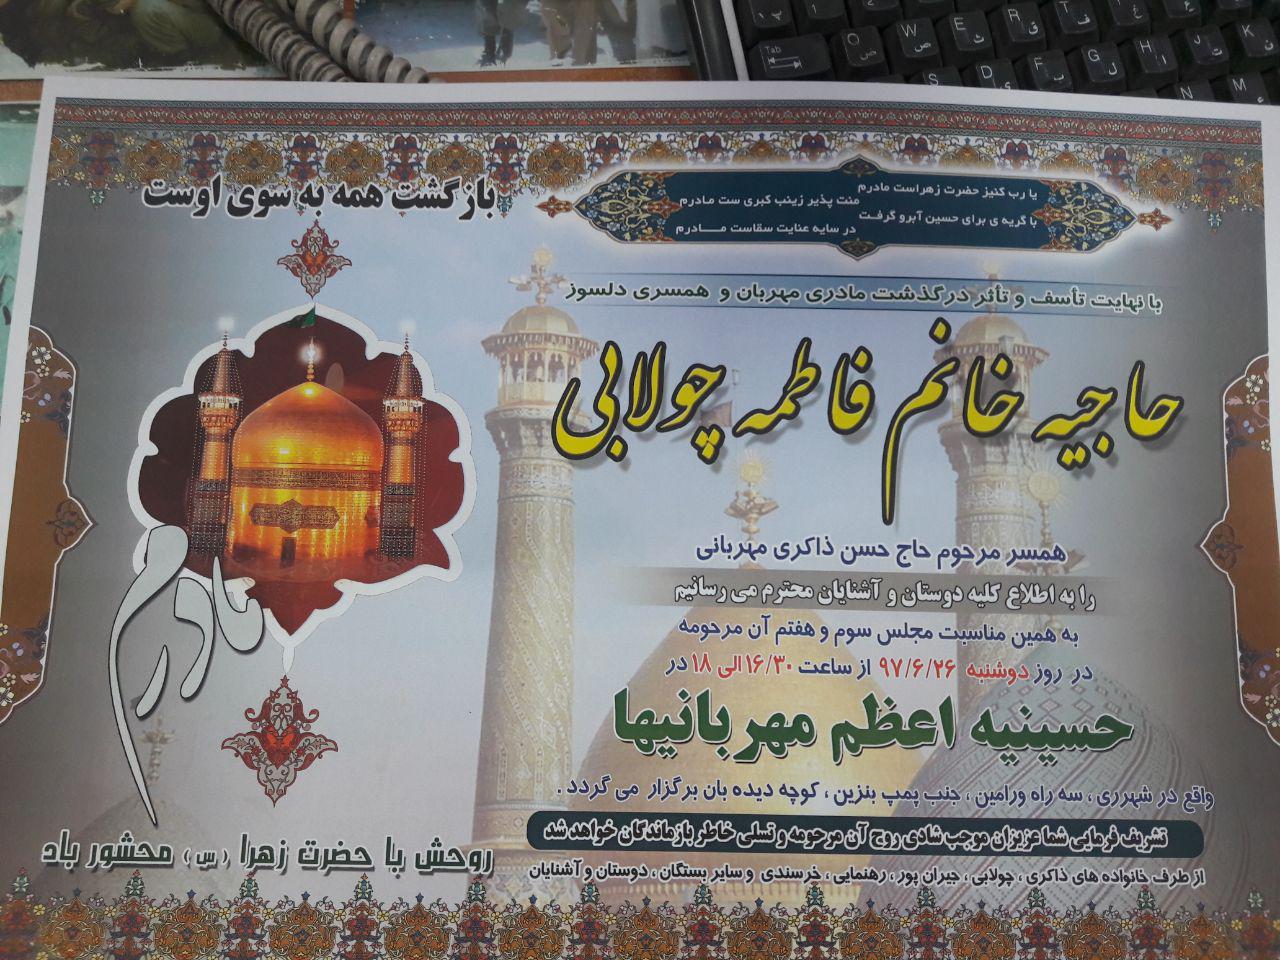 بازگشت همه به سوی اوست
یا رب کنیز حضرت زهراست مادرم
منت پذیر زینب کبری ست مادرم
با گریه ی برای حسین آبرو گرفت
در سایه عنایت سقاست مـــادرم
با نهایت تأسف و تأثر درگذشت مادری مهربان و همسری دلسوز
حاجیه خانم فاطمه چولابی
همسر مرحوم حاج حسن ذاکری مهربانی
را به اطلاع کلیه دوستان و آشنایان محترم می رسانیم
به همین مناسبت مجلس سوم و هفتم آن مرحومه
در روز دوشنبه ۹۷/۶/۲۶ از ساعت ۱۶/۳۰ الی ۱۸ در
حسینیه اعظم مهربانیها
واقع در شهرری ، سه راه ورامین ، جنب پمپ بنزین ، کوچه دیده بان برگزار می گردد .
تشریف فرمایی شما عزیزان موجب شادی روح آن مرحومه و تسلی خاطر بازماندگان خواهد شد
از طرف خانواده های ذاکری ، چولابی ، جیران پور ، رهنمایی ، خرسندی و سایر بستگان ، دوستان و آشنایان
مادرم
روحش با حضرت زهرا (س) محشور باد
Tab
Q W E R T
S D F G H J K
N M